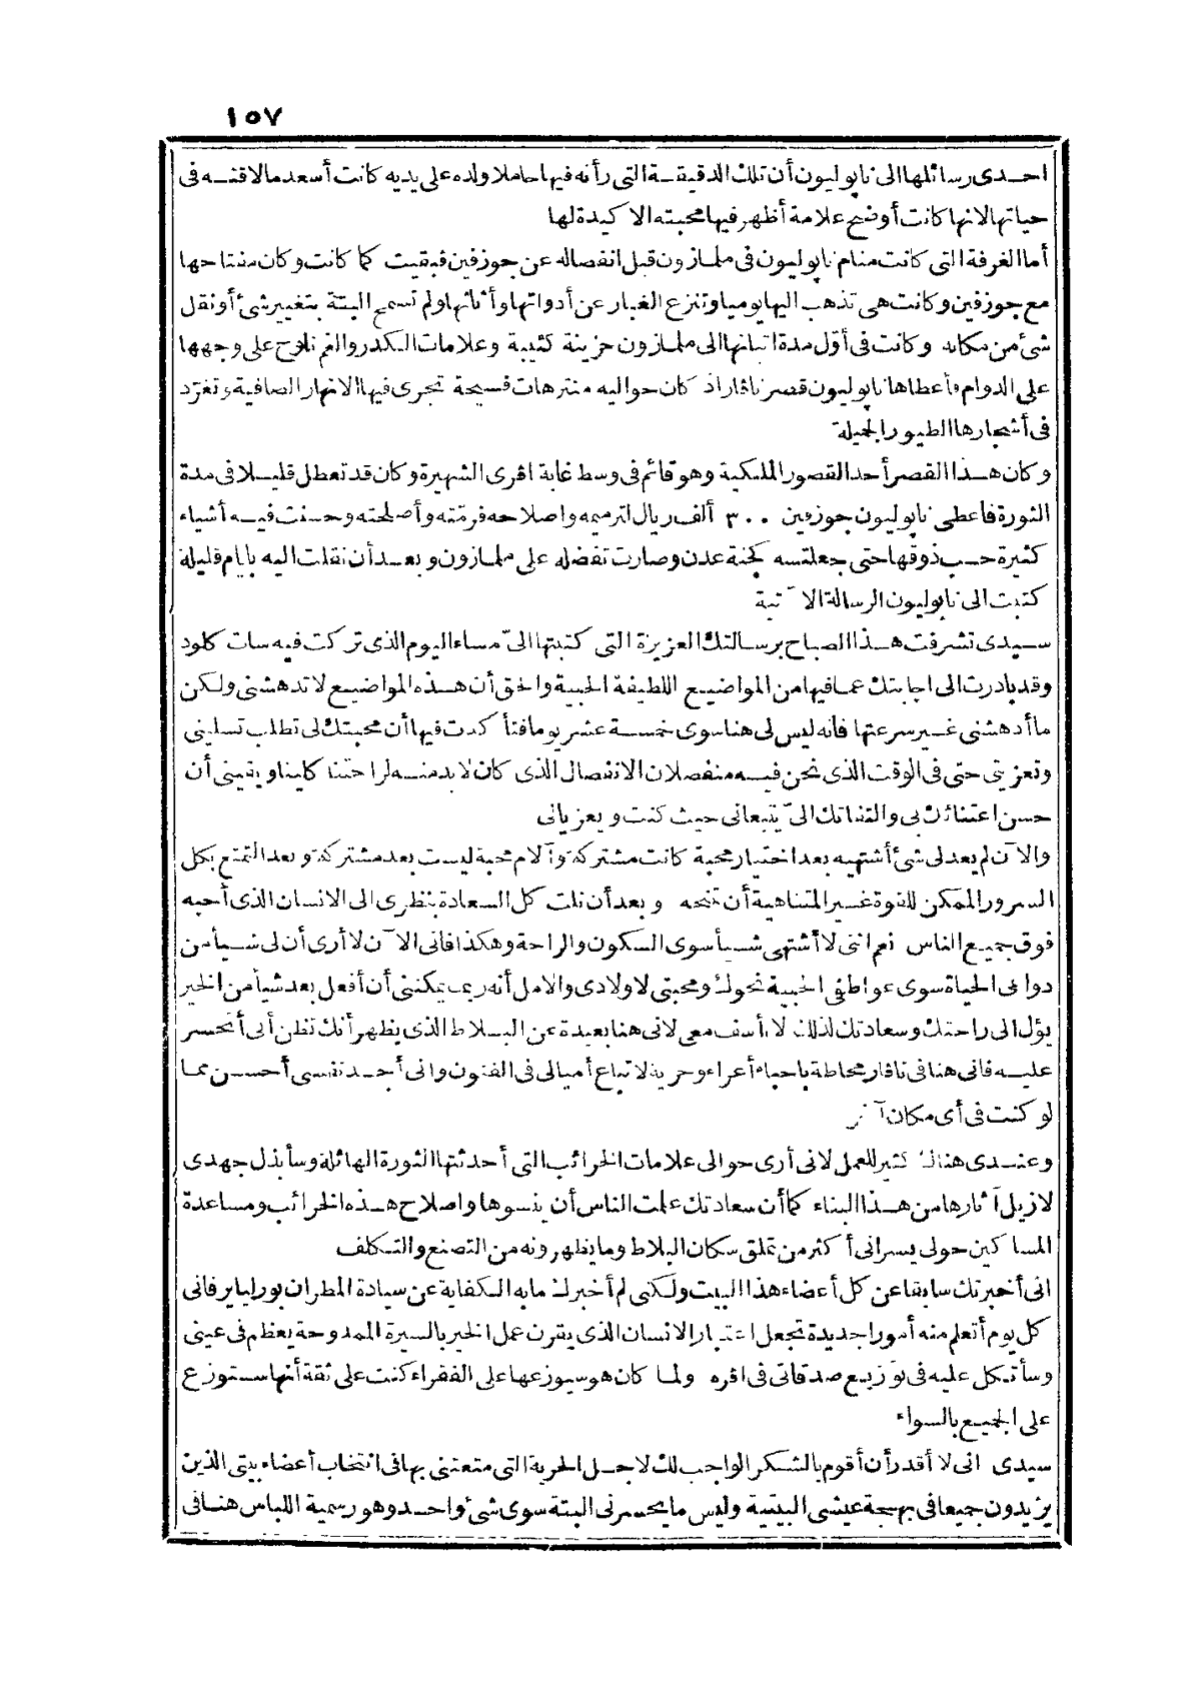 ١٥٧
احدى رسائلها الى نابوليون أن تلك الدقيقة التى رأته فيها حاملا ولده على يديه كانت أسعد ما لاقته فى
حياتها لانها كانت أوضح علامة أظهر فيها محبته الاكيدة لها
أما الغرفة التى كانت منام نابوليون فى ملمازون قبل انفصاله عن جوزفين فبقيت كما كانت وكان مفتاحها
مع جوزفين وكانت هى تذهب اليها يوميا وتنزع الغبار عن أدواتها وأثاثها ولم تسمح البتة بتغيير شئ أو نقل
شئ من مكانه وكانت فى أوّل مدة اتيانها الى ملمازون حزينة كئيبة وعلامات الكدر والغم تلوح على وجهها
على الدوام فأعطاها نابوليون قصر ناڤار اذ كان حواليه منتزهات فسيحة تجرى فيها الانهار الصافية وتغرّد
فى أشجارها الطيور الجميلة
وكان هذا القصر أحد القصور الملكية وهو قائم فى وسط غابة اڤرى الشهيرة وكان قد تعطل قليلا فى مدة
الثورة فاعطى نابوليون جوزفين ٣٠٠ ألف ريال لترميمه واصلاحه فرمّته وأصلحته وحسنت فيه أشياء
كثيرة حسب ذوقها حتى جعلته كجنة عدن وصارت تفضله على ملمازون وبعد أن نقلت اليه بايام قليلة
كتبت الى نابوليون الرسالة الآتية
سيدى تشرفت هذا الصباح برسالتك العزيزة التى كتبتها الىّ مساء اليوم الذى تركت فيه سات كلود
وقد بادرت الى اجابتك عما فيها من المواضيع اللطيفة الحبية والحق أن هذه المواضيع لا تدهشنى ولكن
ما أدهشنى غير سرعتها فانه ليس لى هنا سوى خمسة عشر يوما فتأكدت فيها أن محبتك لى تطلب تسليتى
وتعزيتى حتى فى الوقت الذى نحن فيه منفصلان الانفصال الذى كان لابد منه لراحتنا كلينا ويقينى أن
حسن اعتنائك بى والتفاتك الىّ يتبعانى حيث كنت ويعزيانى
والآن لم يعد لى شئ أشتهيه بعد اختيار محبة كانت مشتركة وآلام محبة ليست بعد مشتركة وبعد التمتع بكل
السرور الممكن للقوة غير المتناهية أن تمنحه وبعد أن نلت كل السعادة بنظرى الى الانسان الذى أحبه
فوق جميع الناس نعم اننى لا أشتهى شيأ سوى السكون والراحة وهكذا فانى الآن لا أرى أن لى شيأ من
دواعى الحياة سوى عواطفى الحبية نحوك ومحبتى لاولادى والامل أنه ربما يمكننى أن أفعل بعد شيأ من الخير
يؤل الى راحتك وسعادتك لذلك لا تأسف معى لانى هنا بعيدة عن البلاط الذى يظهر أنك تظن أنى أتحسر
عليه فانى هنا فى ناڤار محاطة باحباء أعزاء وحرية لاتباع أميالى فى الفنون وانى أجد نفسى أحسن مما
لو كنت فى أى مكان آخر
وعندى هناك كثير للعمل لانى أرى حوالى علامات الخرائب التى أحدثتها الثورة الهائلة وسأبذل جهدى
لازيل آثارها من هذا البناء كما أن سعادتك علمت الناس أن ينسوها واصلاح هذه الخرائب ومساعدة
المساكين حولى يسرانى أكثر من تملق سكان البلاط وما يظهرونه من التصنع والتكلف
انى أخبرتك سابقا عن كل أعضاء هذا البيت ولكنى لم أخبرك ما به الكفاية عن سيادة المطران بورليابر فانى
كل يوم أتعلم منه أمورا جديدة تجعل اعتبار الانسان الذى يقرن عمل الخير بالسيرة الممدوحة يعظم فى عينى
وسأتكل عليه فى توزيع صدقاتى فى اڤره ولما كان هو سيوزعها على الفقراء كنت على ثقة أنها ستوزع
على الجميع بالسواء
سيدى انى لا أقدر أن أقوم بالشكر الواجب لك لاجل الحرية التى متعتنى بها فى انتخاب أعضاء بيتى الذين
يزيدون جميعا فى بهجة عيشى البيتية وليس ما يحسرنى البتة سوى شئ واحد وهو رسمية اللباس هنا فى